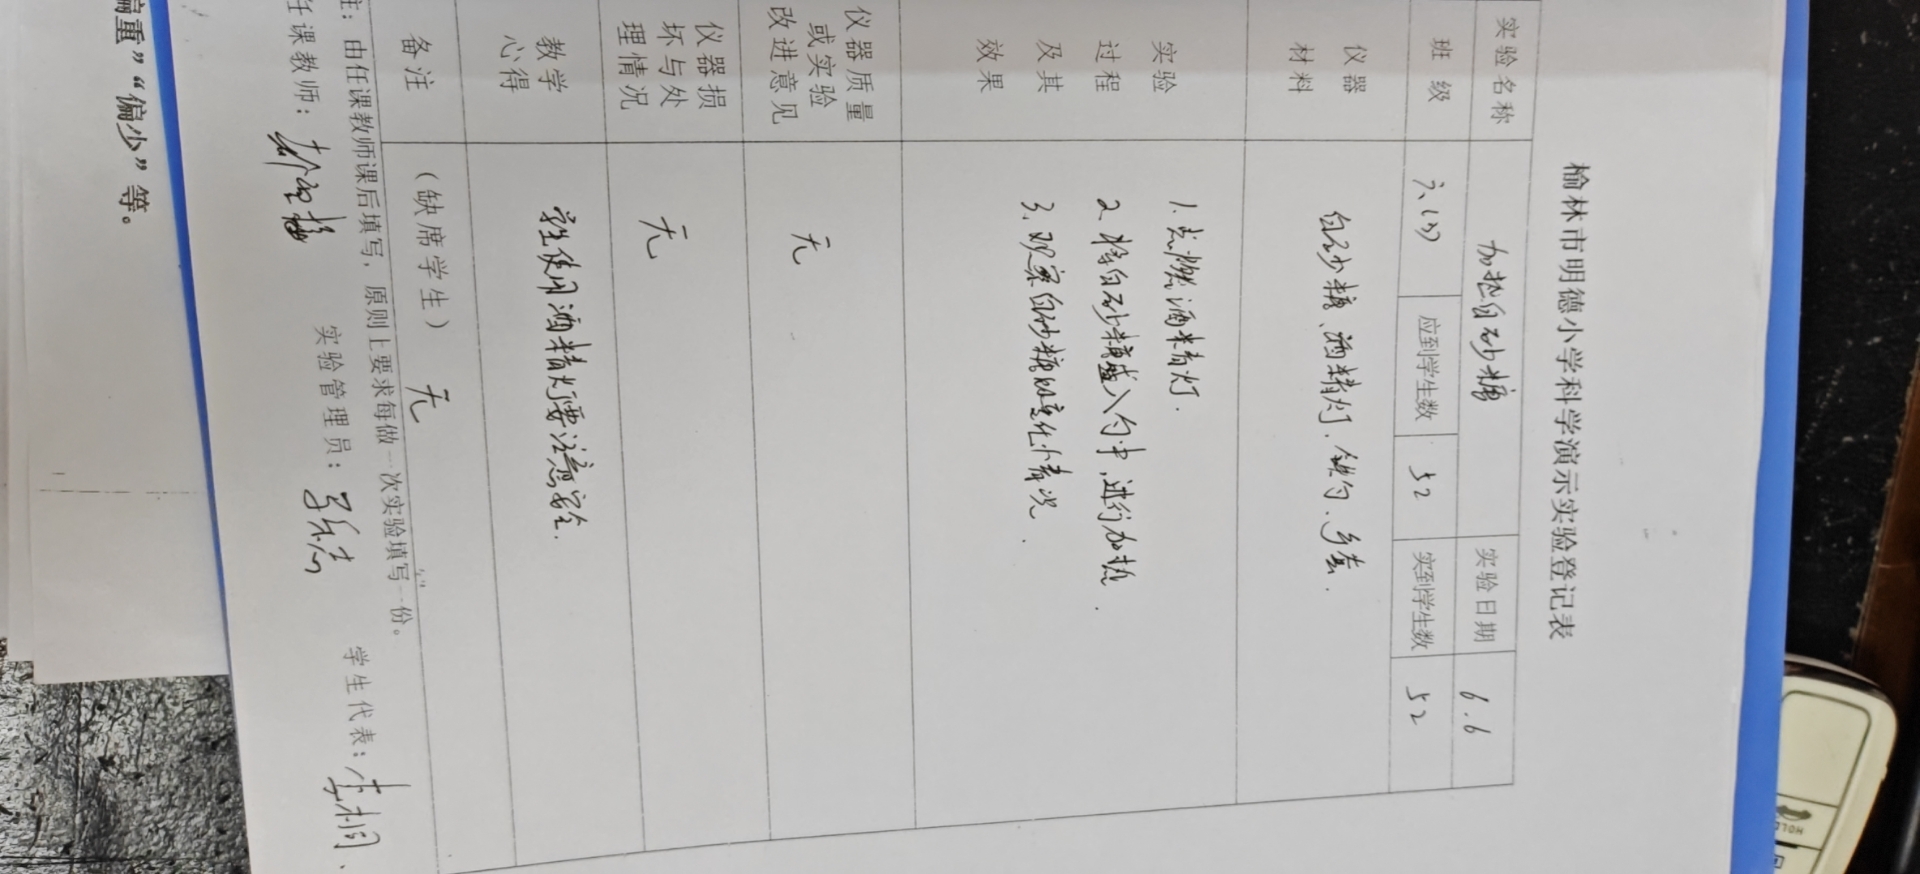 榆林市明德小学科学演示实验登记表
实验名称 加热白砂糖 实验日期 6.6
班级 六(3) 应到学生数 52 实到学生数 52
仪器材料 白砂糖、酒精灯、铁勺、
实验过程及其效果
1.点燃酒精灯.
2.将白砂糖盛入勺中,进行加热.
3.观察白砂糖的变化情况.
仪器质量或实验改进意见 无
仪器损坏与处理情况 无
教学心得 学生使用酒精灯要注意安全.
备注 (缺席学生) 无
注:由任课教师课后填写,原则上要求每做一次实验填写一份。
任课教师: 实验管理员: 学生代表:
偏重”“偏少”等。
HOLD